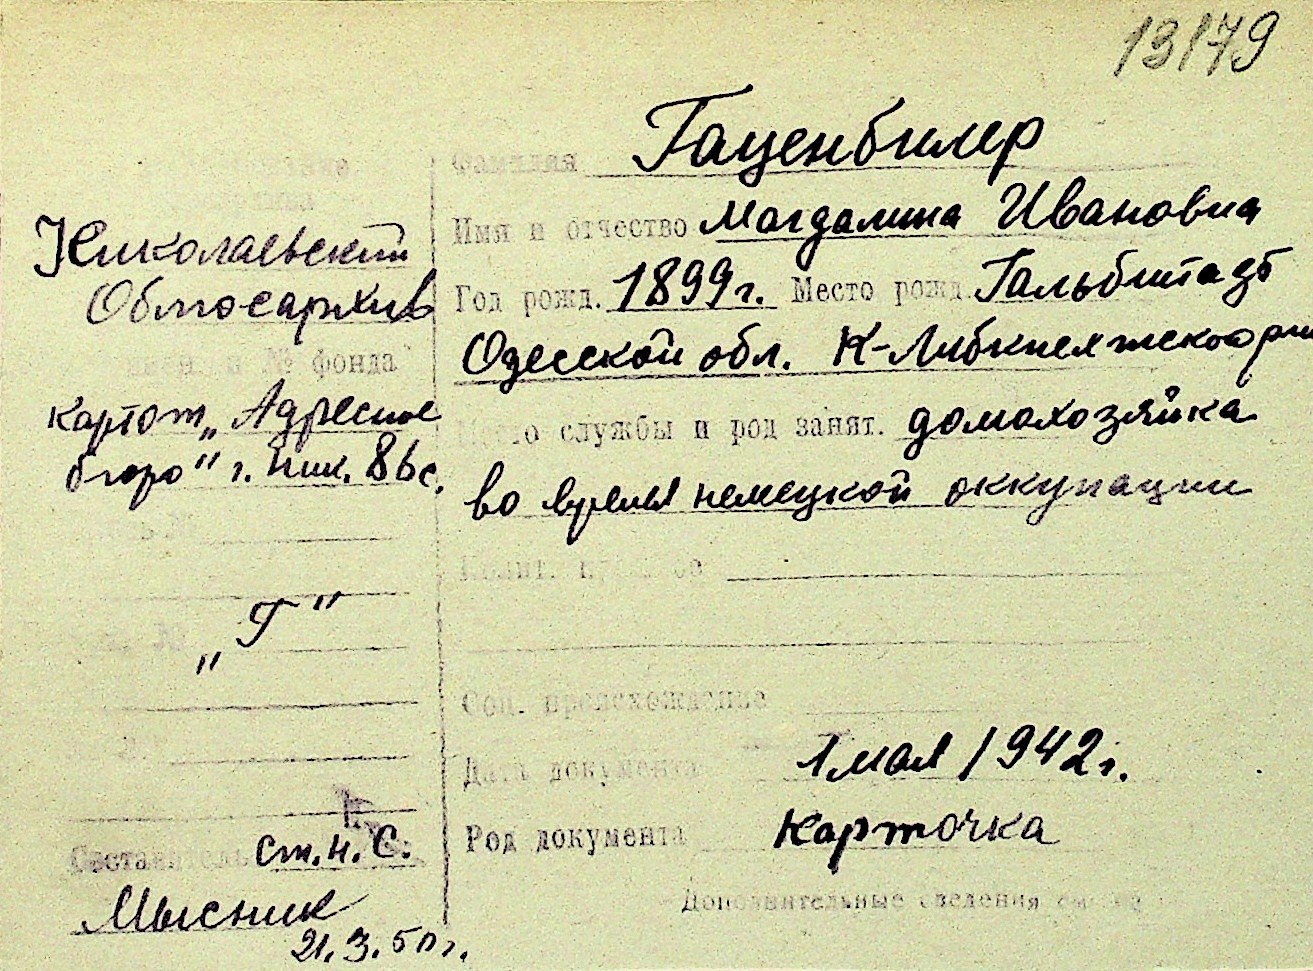 13179
Фамилия Гаценбилер
Имя и отчество Магдалина Ивановна
Год рожд. 1899 г. Место рожд. Гальбштадт
Одесской обл. К-Либкнехтского р-на
службы и род занят. домохозяйка
во время немецкой оккупации
Соц. происхождение
Дата документа 1 мая 1942 г.
Род документа Карточка
Дополнительные сведения
Николаевский
Облгосархив
№ фонда
картот „Адресное
бюро" г. Ник. 86 с.
„Г"
Составитель ст. н. с.
Мысник
21.3.50 г.